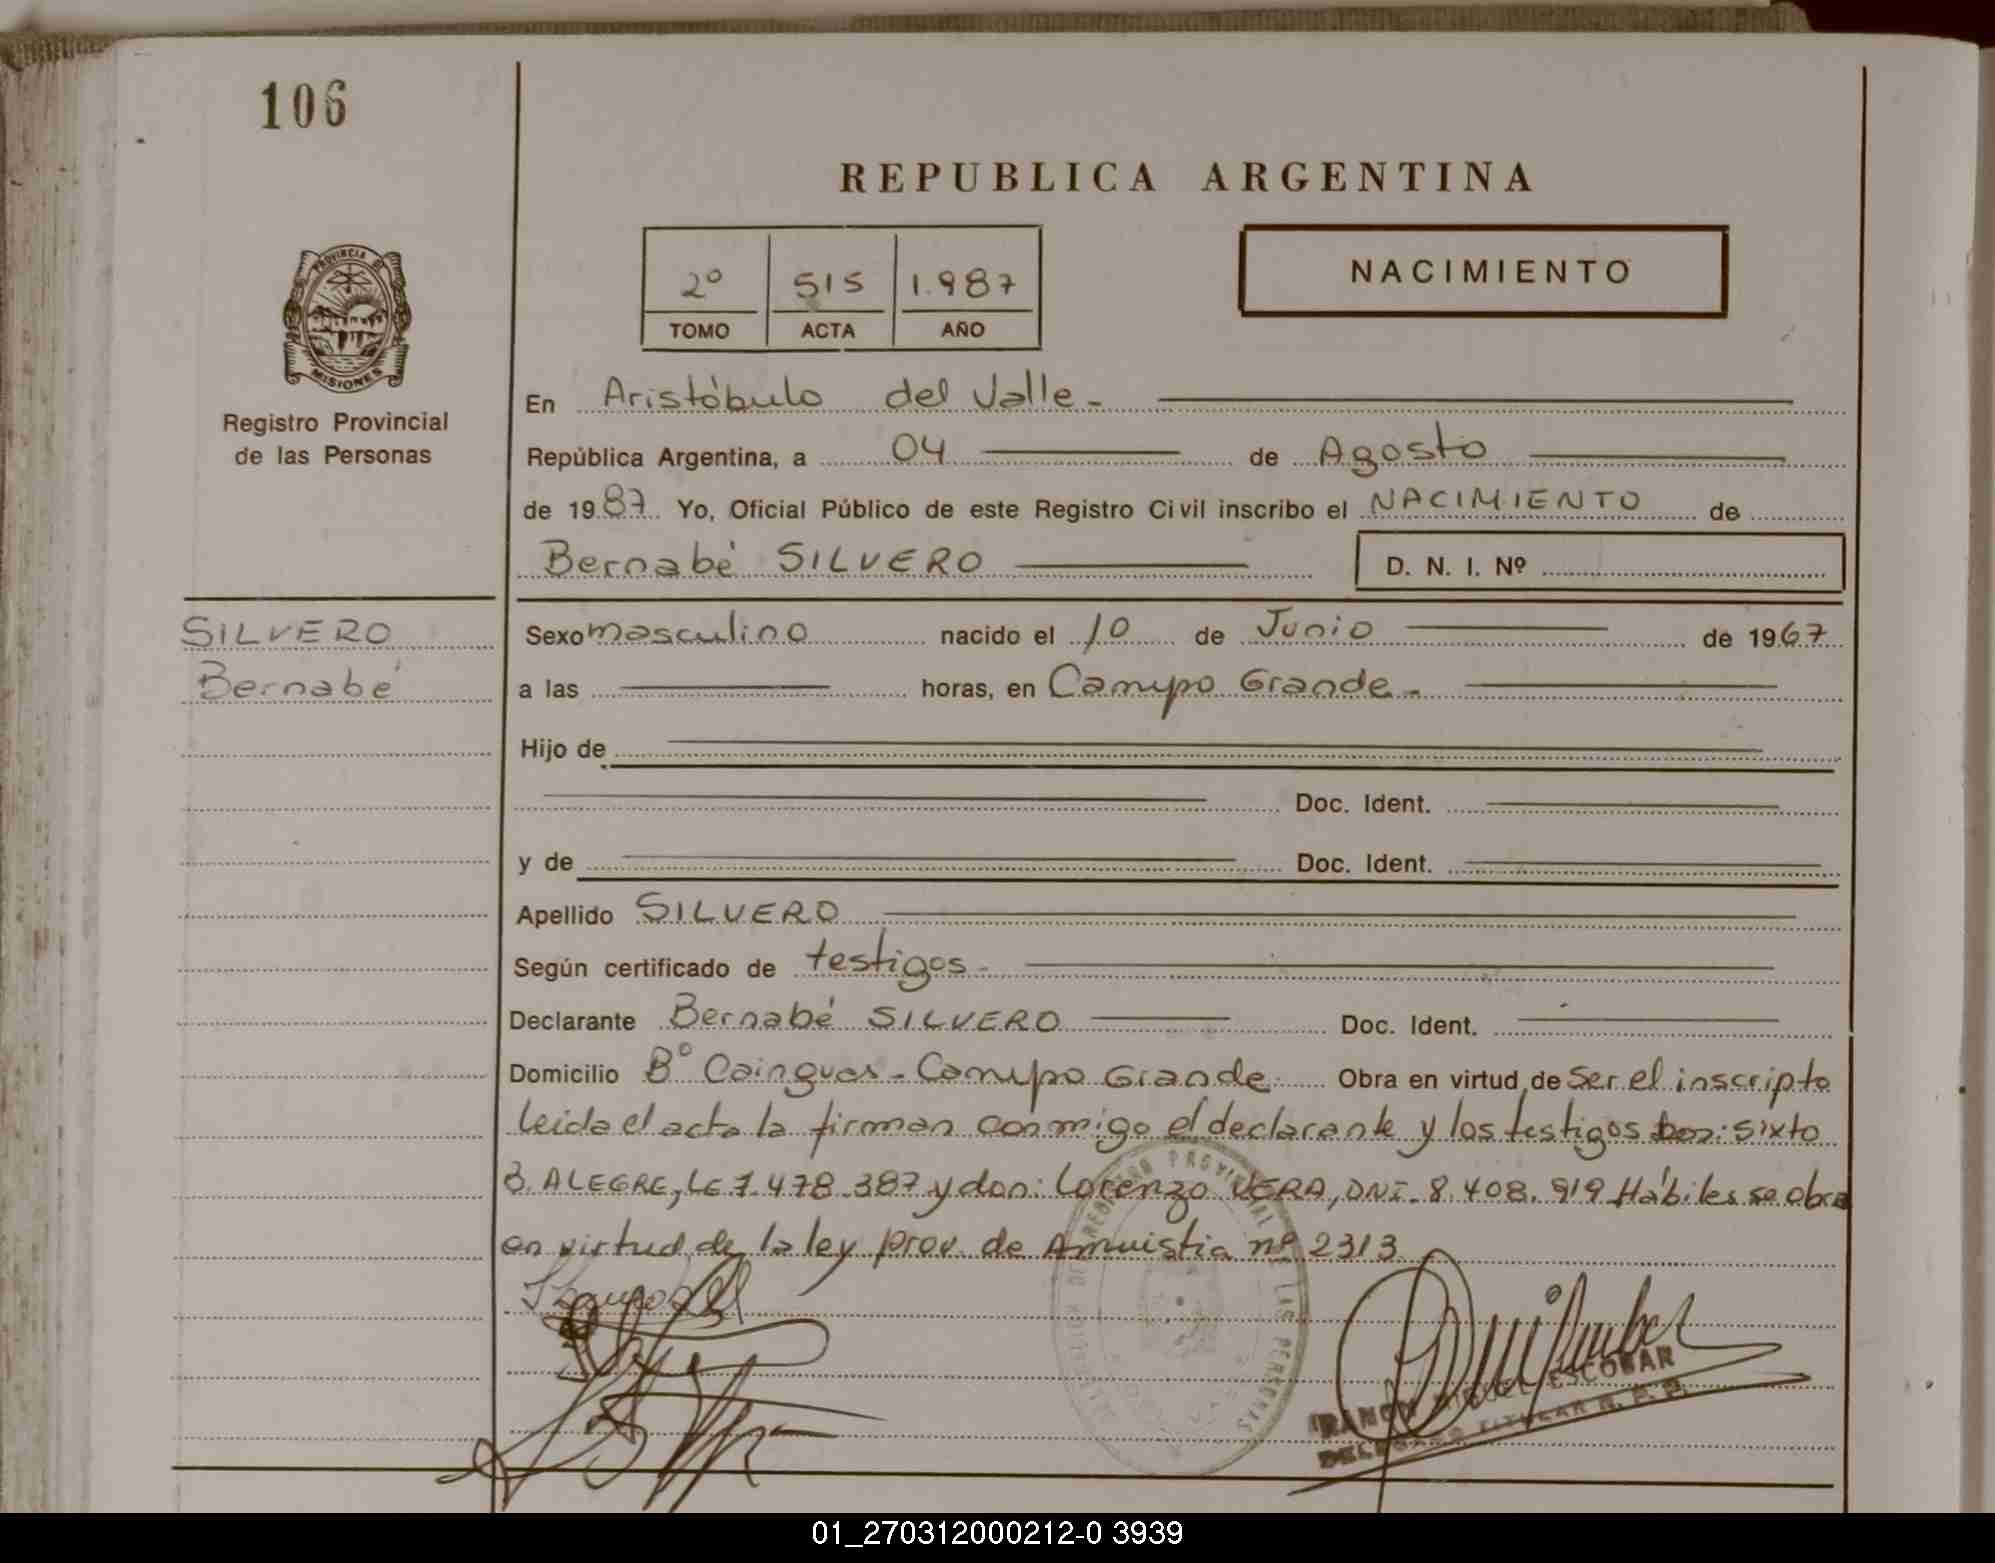 106
REPUBLICA ARGENTINA
PROVINCIA DE
MISIONES
Registro Provincial
de las Personas
2º 515 1.987
TOMO ACTA AÑO
NACIMIENTO
En Aristóbulo del Valle.-
República Argentina, a 04 de Agosto
de 1987 Yo, Oficial Público de este Registro Civil inscribo el NACIMIENTO de
Bernabé SILVERO D. N. I. Nº
SILVERO
Bernabé
Sexo masculino nacido el 10 de Junio de 1967
a las horas, en Campo Grande.-
Hijo de
Doc. Ident.
y de Doc. Ident.
Apellido SILVERO
Según certificado de testigos.-
Declarante Bernabé SILVERO Doc. Ident.
Domicilio Bº Cainguas - Campo Grande. Obra en virtud de ser el inscripto
leida el acta la firman conmigo el declarante y los testigos don: Sixto
ALEGRE, LE 7.478.387 y don: Lorenzo VERA, DNI. 8.408.919 Hábiles se obra
en virtud de la ley prov. de Amnistia nº 2313
REGISTRO PROVINCIAL DE LAS PERSONAS
MIGUEL ESCOBAR
DELEGADO TITULAR R. P. P.
01_270312000212-0 3939